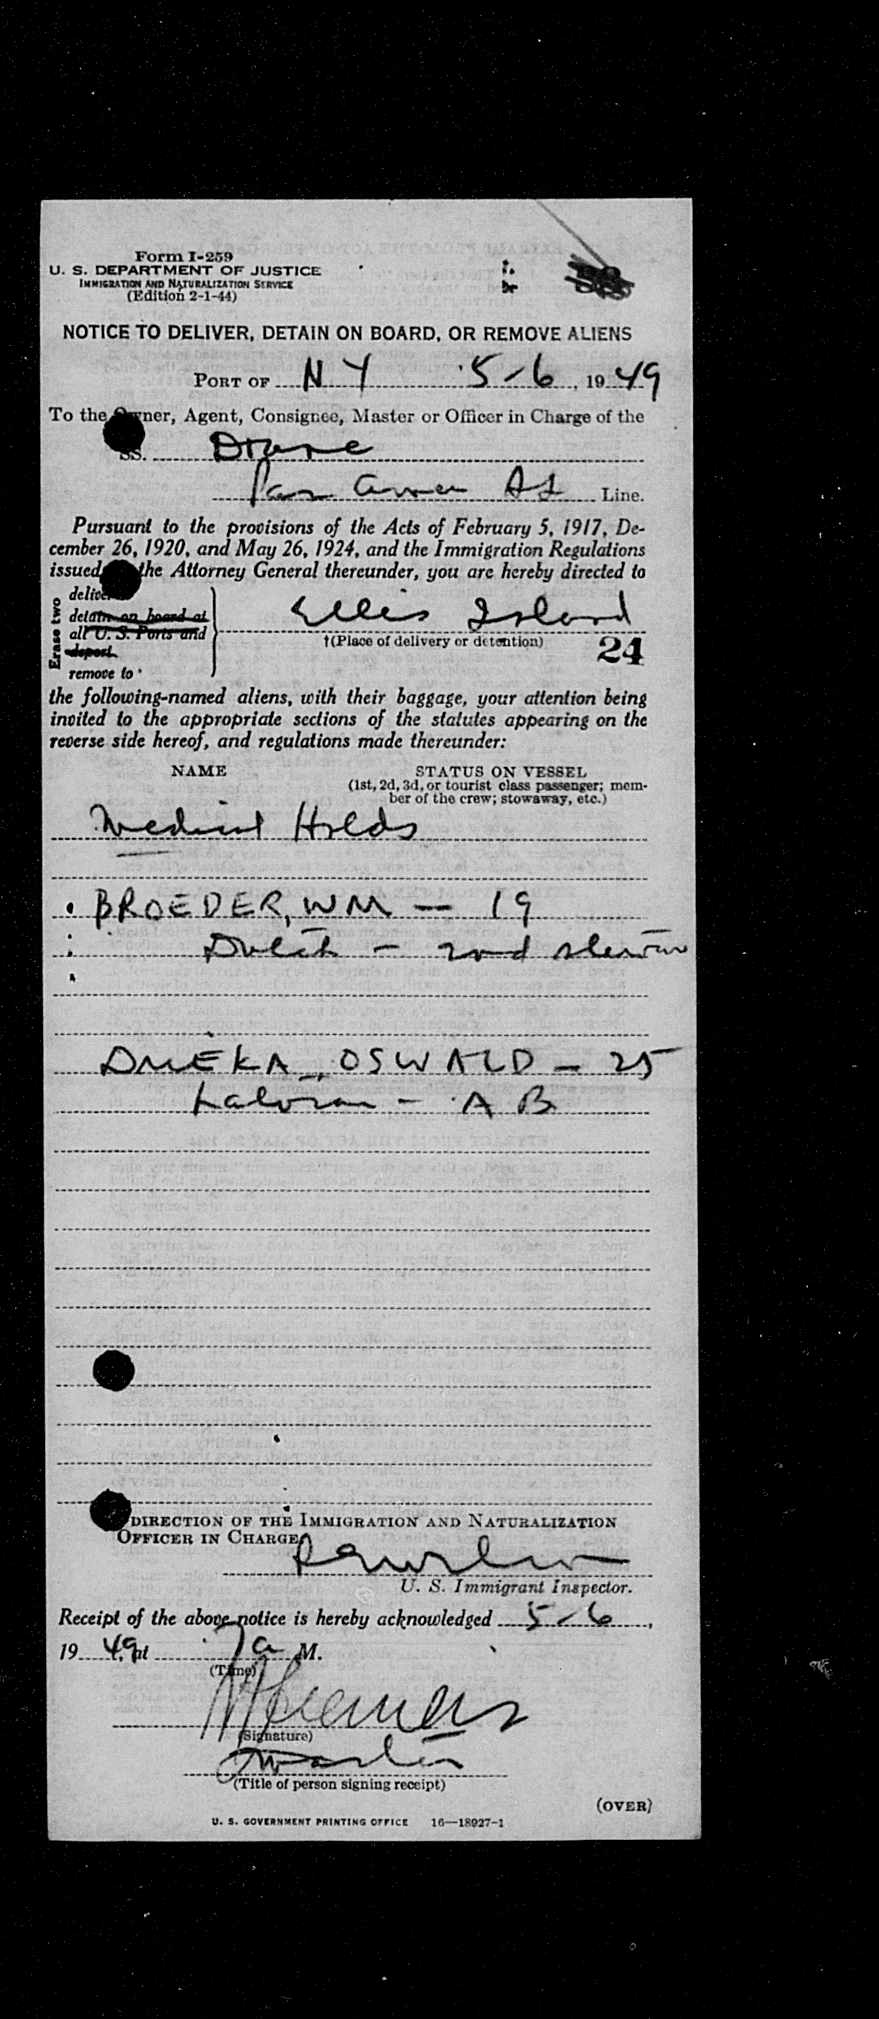 Form I-259
U. S. DEPARTMENT OF JUSTICE
IMMIGRATION AND NATURALIZATION SERVICE
(Edition 2-1-44)
NOTICE TO DELIVER, DETAIN ON BOARD, OR REMOVE ALIENS
PORT OF N Y 5-6, 1949
To the Owner, Agent, Consignee, Master or Officer in Charge of the
SS.
Pan Amer Line.
Pursuant to the provisions of the Acts of February 5, 1917, De-
cember 26, 1920, and May 26, 1924, and the Immigration Regulations
issued the Attorney General thereunder, you are hereby directed to
Erase two
deliver
detain on board at
all U. S. Ports and
deport
remove to
Ellis Island
†(Place of delivery or detention)
24
the following-named aliens, with their baggage, your attention being
invited to the appropriate sections of the statutes appearing on the
reverse side hereof, and regulations made thereunder:
NAME STATUS ON VESSEL
(1st, 2d, 3d, or tourist class passenger; mem-
ber of the crew; stowaway, etc.)
Medical Holds
BROEDER, WM — 19
Dutch - 2nd
DMEKA, OSWALD - 25
- A B
DIRECTION OF THE IMMIGRATION AND NATURALIZATION
OFFICER IN CHARGE
U. S. Immigrant Inspector.
Receipt of the above notice is hereby acknowledged 5-6,
19 49, at 7 a M.
(Time)
(Signature)
Master
(Title of person signing receipt)
(OVER)
U. S. GOVERNMENT PRINTING OFFICE 16—18927-1